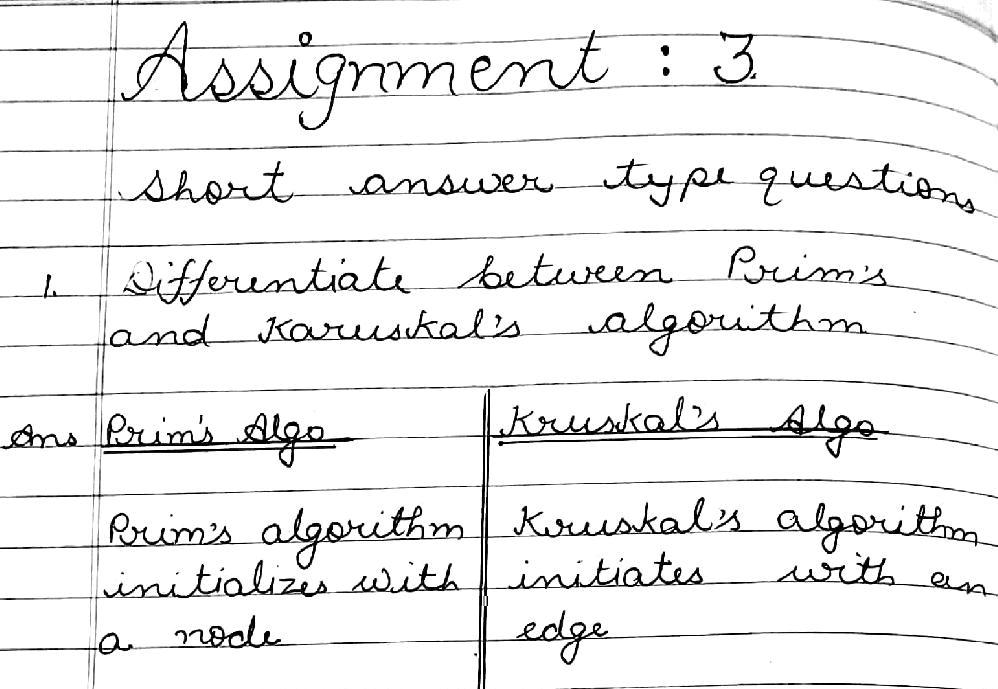 Assignment : 3.
Short answer type questions
1. Differentiate between Prim's
and Karuskal's algorithm
Ans Prim's Algo
Kruskal's Algo
Prim's algorithm
initializes with
a node
Kruskal's algorithm
initiates with an
edge